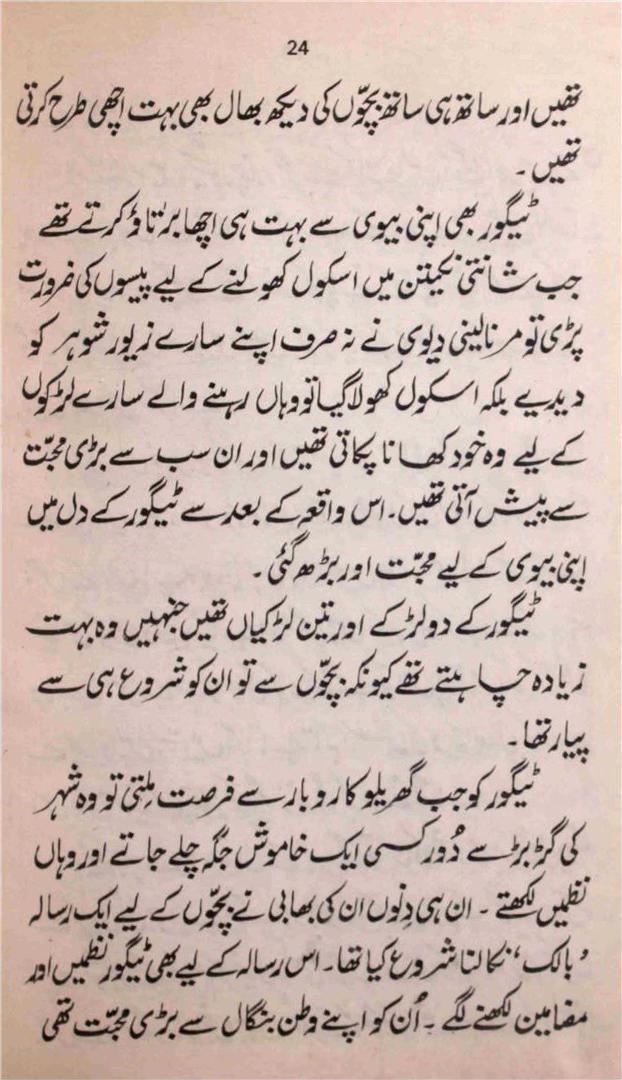 24
تھیں اور ساتھ ہی ساتھ بچّوں کی دیکھ بھال بھی بہت اچھی طرح کرتی
تھیں۔
ٹیگور بھی اپنی بیوی سے بہت ہی اچھا برتاؤ کرتے تھے
جب شانتی نکیتن میں اسکول کھولنے کے لیے پیسوں کی ضرورت
پڑی تو مرنالینی دیوی نے نہ صرف اپنے سارے زیور شوہر کو
دیدیے بلکہ اسکول کھولا گیا تو وہاں رہنے والے سارے لڑکوں
کے لیے وہ خود کھانا پکاتی تھیں اور ان سب سے بڑی محبّت
سے پیش آتی تھیں۔ اس واقعہ کے بعد سے ٹیگور کے دل میں
اپنی بیوی کے لیے محبّت اور بڑھ گئی۔
ٹیگور کے دو لڑکے اور تین لڑکیاں تھیں جنہیں وہ بہت
زیادہ چاہتے تھے کیونکہ بچّوں سے تو ان کو شروع ہی سے
پیار تھا۔
ٹیگور کو جب گھریلو کاروبار سے فرصت مِلتی تو وہ شہر
کی گڑبڑ سے دُور کسی ایک خاموش جگہ چلے جاتے اور وہاں
نظمیں لکھتے۔ ان ہی دِنوں ان کی بھابی نے بچّوں کے لیے ایک رسالہ
’بالک‘ نکالنا شروع کیا تھا۔ اس رسالہ کے لیے بھی ٹیگور نظمیں اور
مضامین لکھنے لگے۔ اُن کو اپنے وطن بنگال سے بڑی محبّت تھی